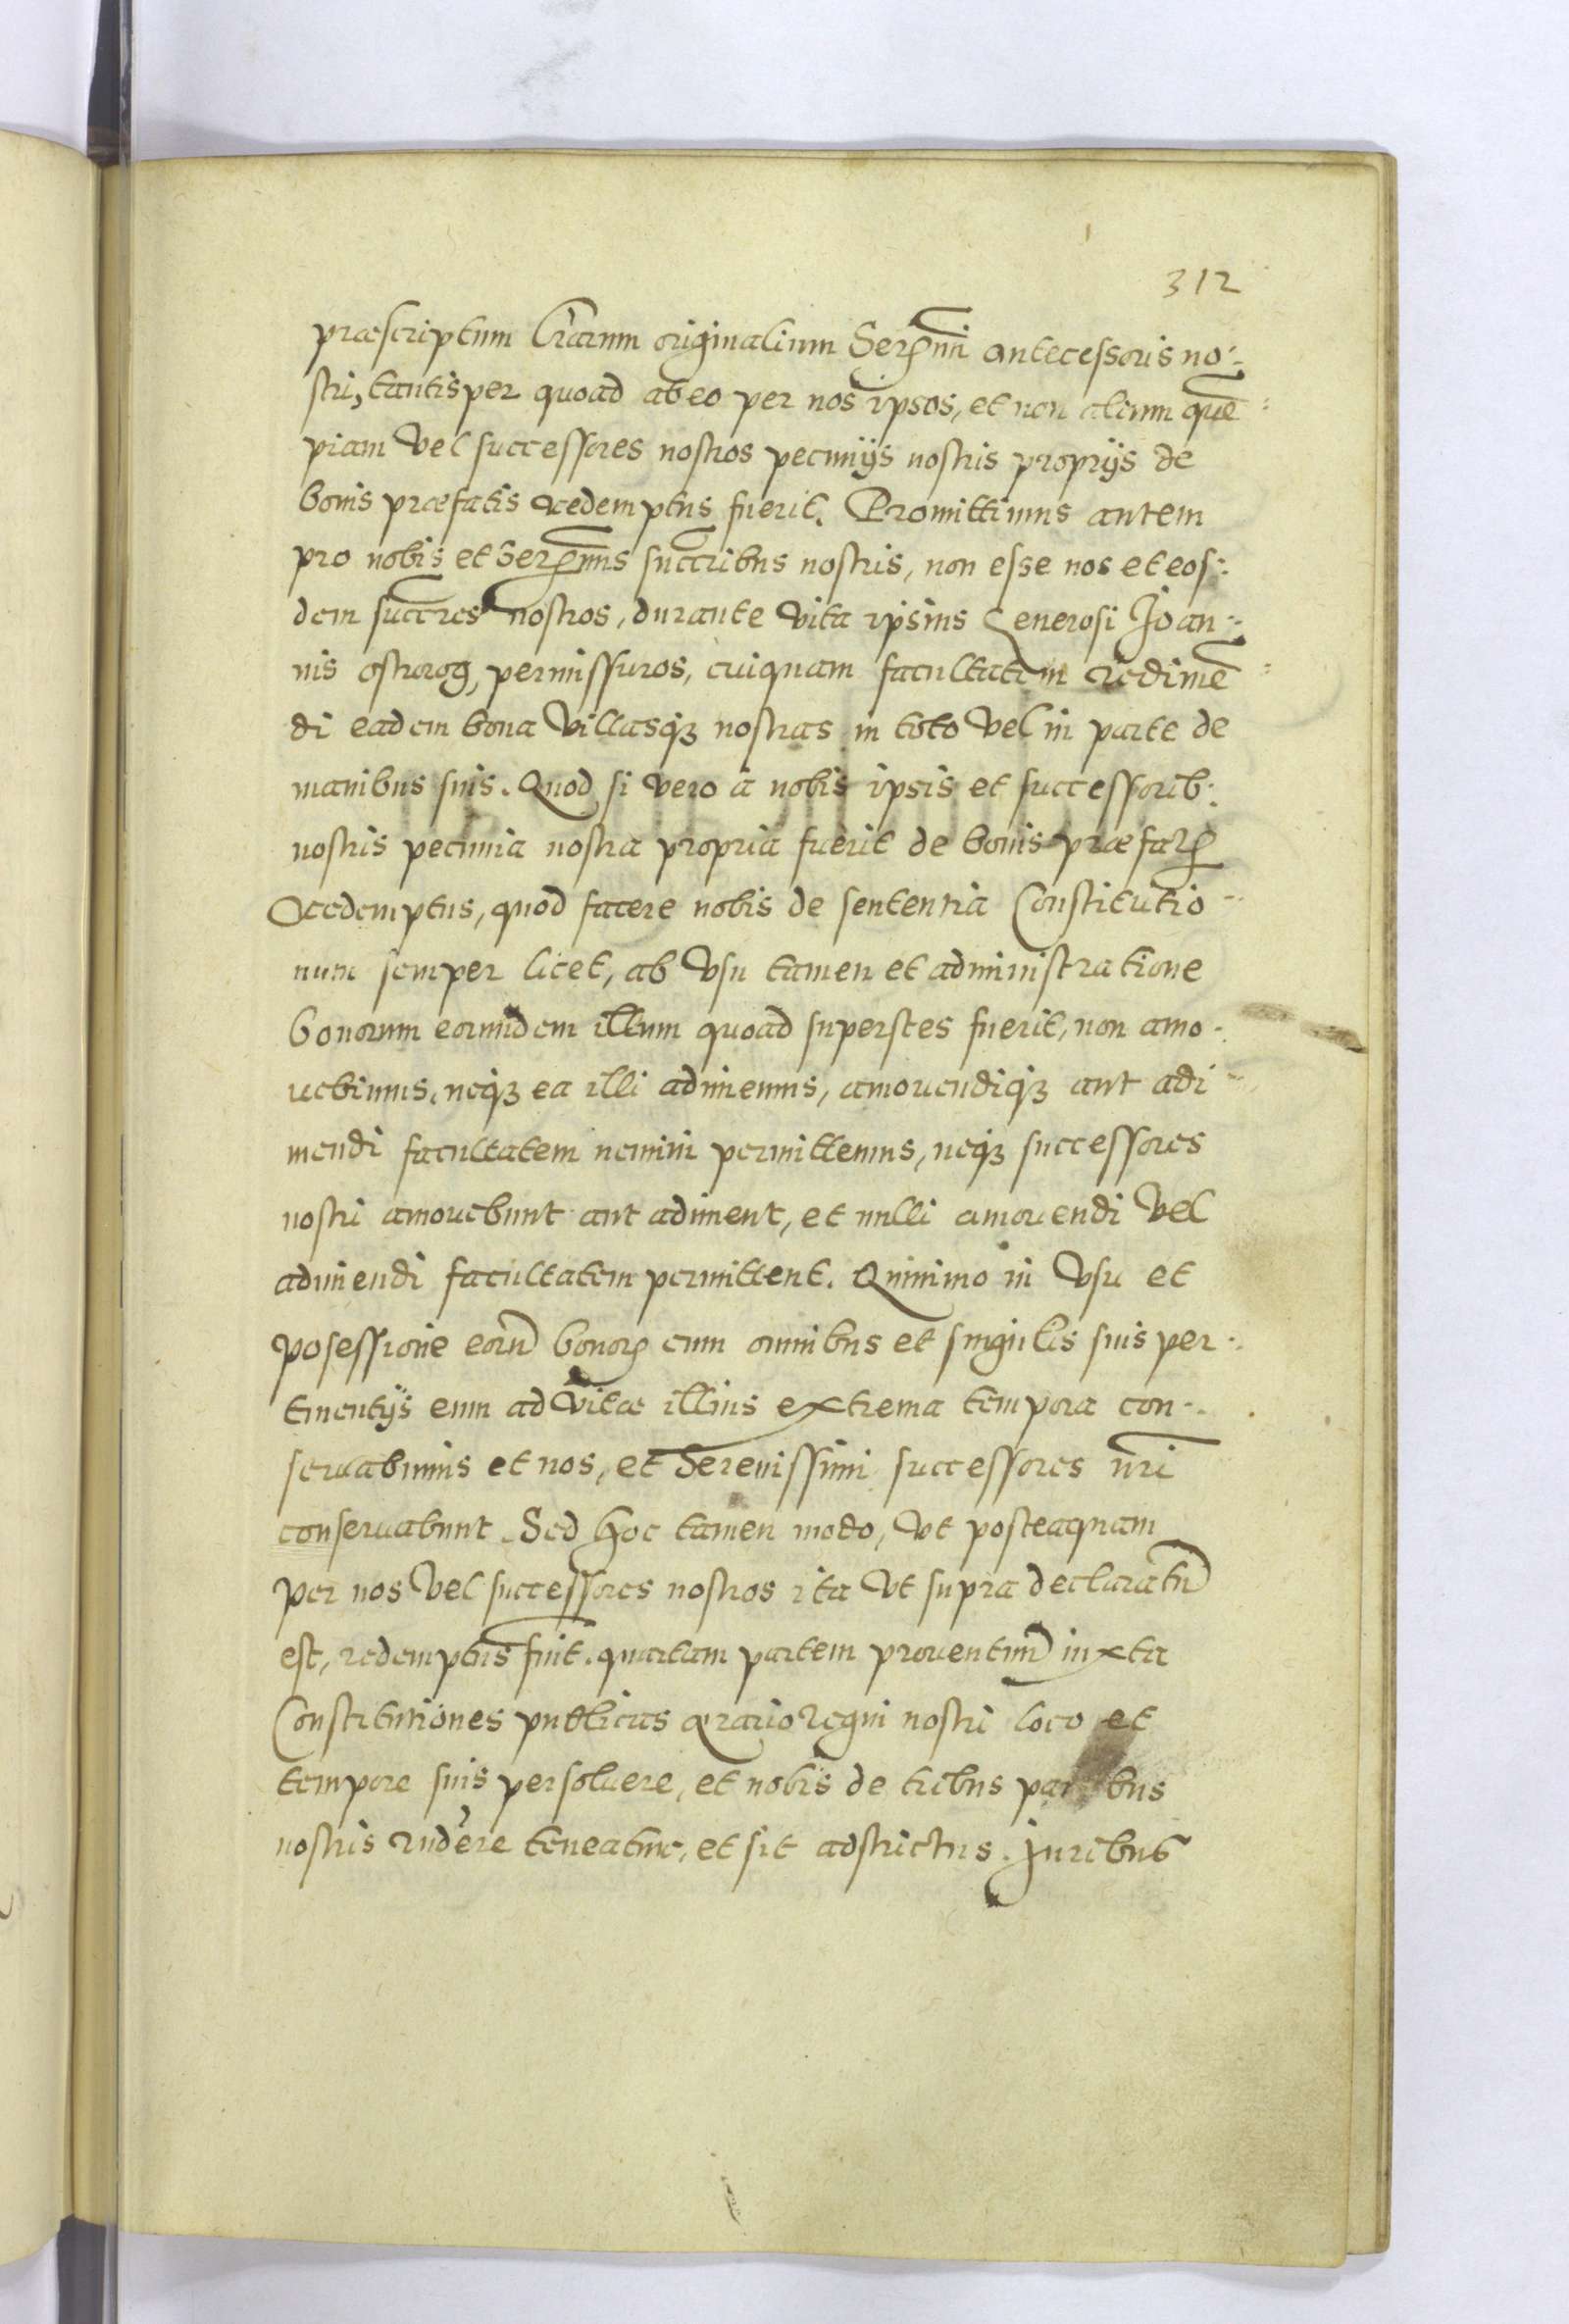 312
præscriptum l̃rarum originalium Serꝫmi antecessoris no-
stri, tantisper quoad ab eo per nos ipsos, et non alium quẽ-
piam vel successores nostros pecunijs nostris proprijs de
bonis præfatis redemptus fuerit. Promittimus autem
pro nobis et Serꝫmis succribus nostris, non esse nos et eos-
dem succres nostros, durante vita ipsius Generosi Joan-
nis ostrorog, permissuros, cuiquam facultatem redimẽ-
di eadem bona villasqꝫ nostras in toto vel in parte de
manibus suis. Quod si vero à nobis ipsis et successorib:
nostris pecunia nostra propria fuerit de bonis præfatꝭ
Redemptus, quod facere nobis de sententia Constitutio-
num semper licet, ab vsu tamen et administratione
bonorum eorundem illum quoad superstes fuerit, non amo-
uebimus, neqꝫ ea illi adimemus, amouendiqꝫ aut adi-
mendi facultatem nemini permittemus, neqꝫ successores
nostri amouebunt aut adiment, et nulli amouendi vel
adimendi facultatem permittent. Quinimo in vsu et
posessione eorũ bonorꝝ cum omnibus et singulis suis per-
tinentijs eum ad vitæ illius extrema tempora con-
seruabimus et nos, et Serenissimi successores nr̃i
conseruabunt. Sed hoc tamen modo, vt posteaquam
per nos vel successores nostros ita vt supra declaratũ
est, redemptus fuit. quartam partem prouentuũ iuxta
Constitutiones publicas ærario Regni nostri loco et
tempore suis persoluere, et nobis de tribus partibus
nostris rndere teneatur, et sit adstrictus. Juribus